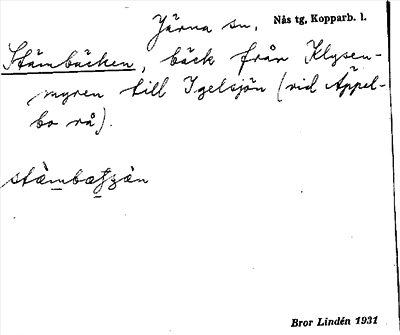 Järna sn. Nås tg, Kopparb. l.
Stämbäcken, bäck från Klysen-
myren till Igelsjön (vid Äppel-
bo rå).
Bror Lindén 1931